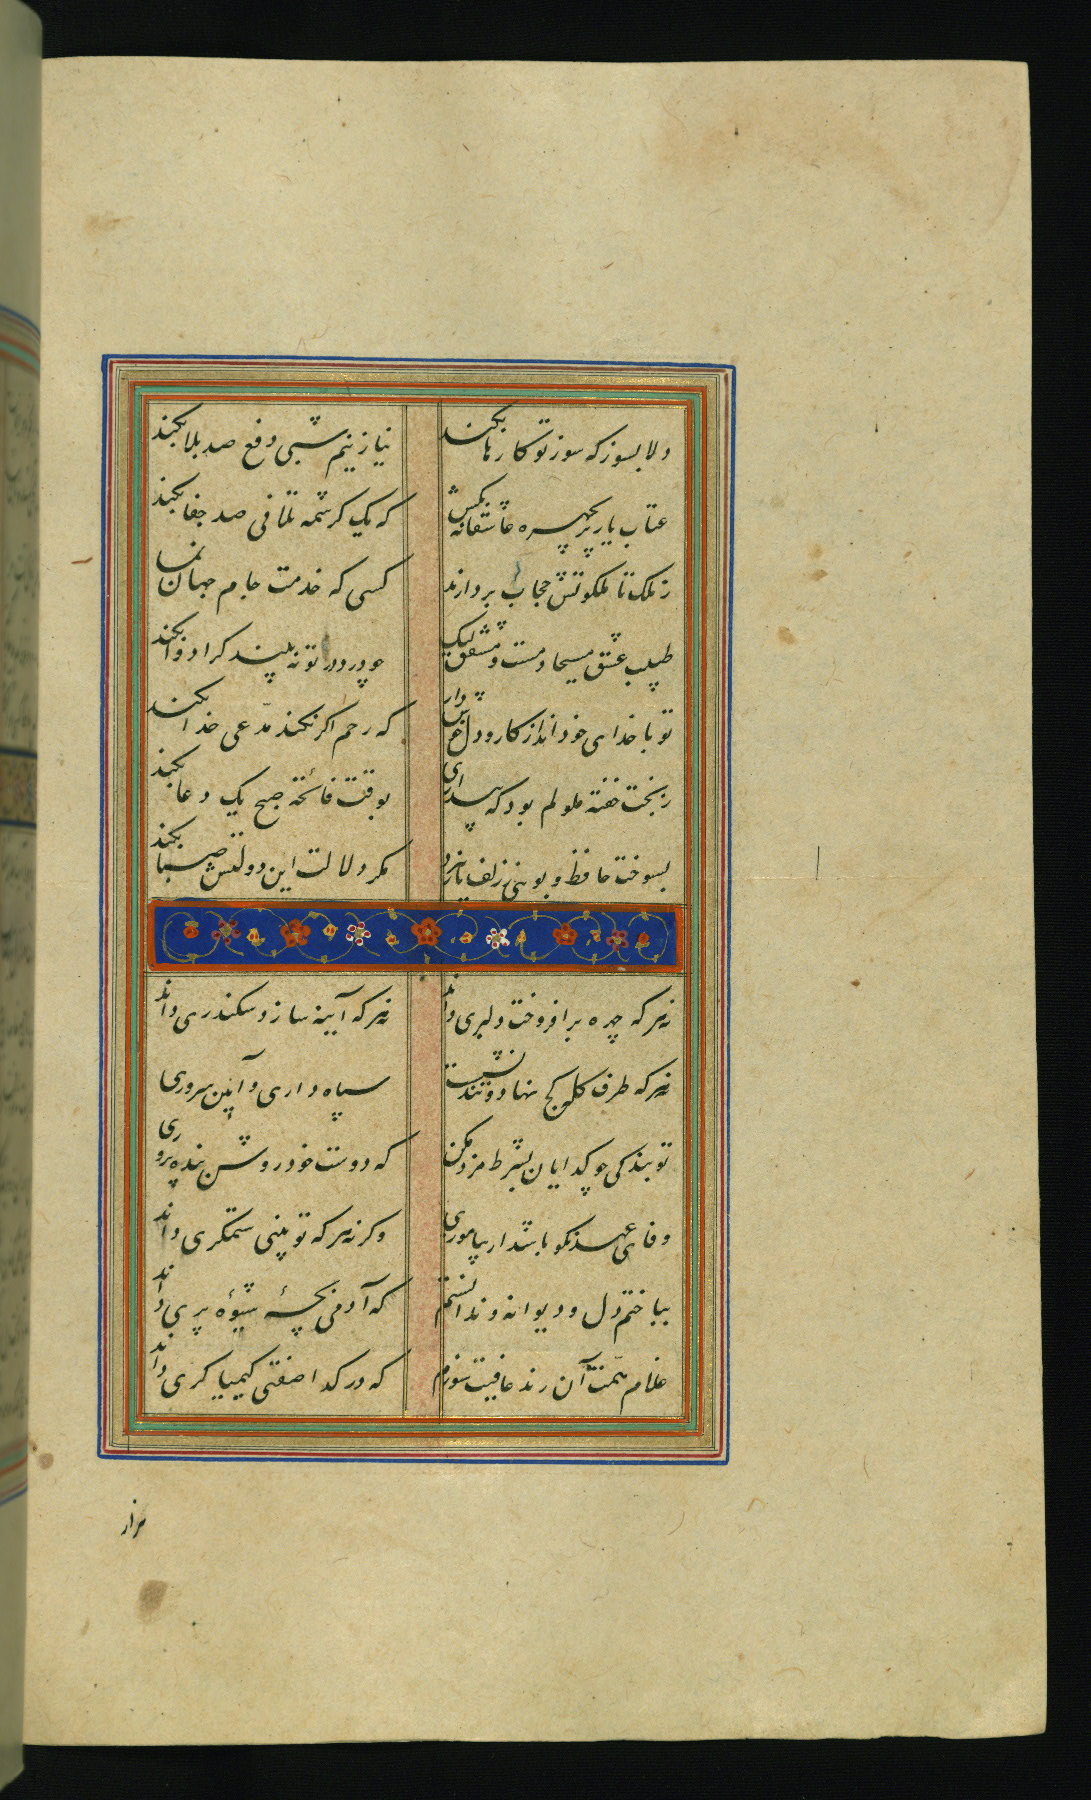 دلا بسوز که سوز تو کارها بکند نیاز نیم شبی دفع صد بلا بکند
عتاب یار پریچهره عاشقانه بکش که یک کرشمه تلافی صد جفا بکند
ز ملک تا ملکوتش حجاب بردارند کسی که خدمت جام جهان نما
طبیب عشق مسیحا دمست و مشفق لیک چو درد در تو نه بیند کرا دوا بکند
تو با خدای خود انداز کار و دل خوش دار که رحم اگر نکند مدّعی خدا بکند
ز بخت خفته ملولم بود که بیداری بوقت فاتحهٔ صبح یک دعا بکند
بسوخت حافظ و بوئی ز زلف یار نبرد مگر دلالت این دولتش صبا بکند
نه هر که چهره برافروخت دلبری داند نه هر که آیینه سازد سکندری داند
نه هر که طرف کله کج نهاد و تند نشست سپاه داری و آیین سروری
تو بندگی چو گدایان بشرط مزد مکن که دوست خود روش بنده پروری
وفای عهد نکو باشد ار بیاموزی وگرنه هر که تو بینی ستمگری داند
بباختم دل دیوانه و ندانستم که آدمی بچهٔ شیوهٔ پری داند
غلام همّت آن رند عافیت سوزم که در گدا صفتی کیمیاگری داند
هزار